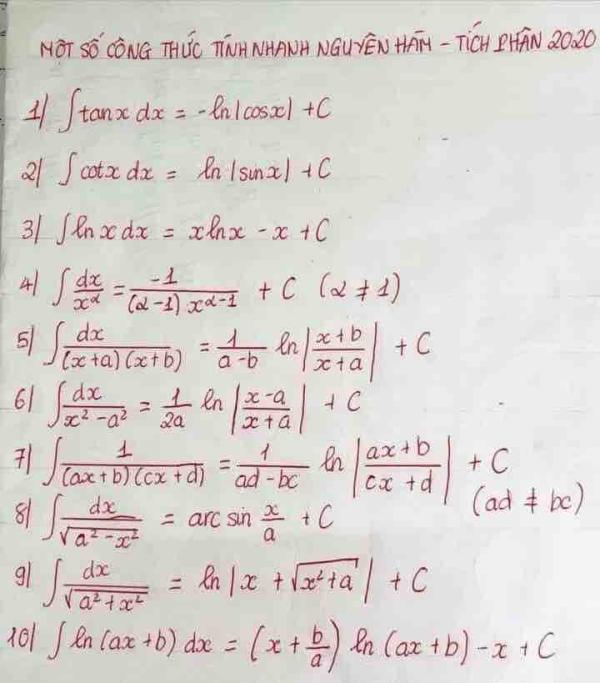 MỘT SỐ CÔNG THỨC TÍNH NHANH NGUYÊN HÀM - TÍCH PHÂN 2020
1) ∫tanx dx = -ln|cosx| + C
2) ∫cotx dx = ln|sinx| + C
3) ∫lnx dx = xlnx - x + C
4) ∫dx/x^α = -1/((α-1)x^(α-1)) + C (α ≠ 1)
5) ∫dx/((x+a)(x+b)) = 1/(a-b) ln|(x+b)/(x+a)| + C
6) ∫dx/(x²-a²) = 1/(2a) ln|(x-a)/(x+a)| + C
7) ∫1/((ax+b)(cx+d)) = 1/(ad-bc) ln|(ax+b)/(cx+d)| + C
(ad ≠ bc)
8) ∫dx/√(a²-x²) = arc sin x/a + C
9) ∫dx/√(a²+x²) = ln|x + √(x²+a)| + C
10) ∫ln(ax+b) dx = (x + b/a) ln(ax+b) - x + C